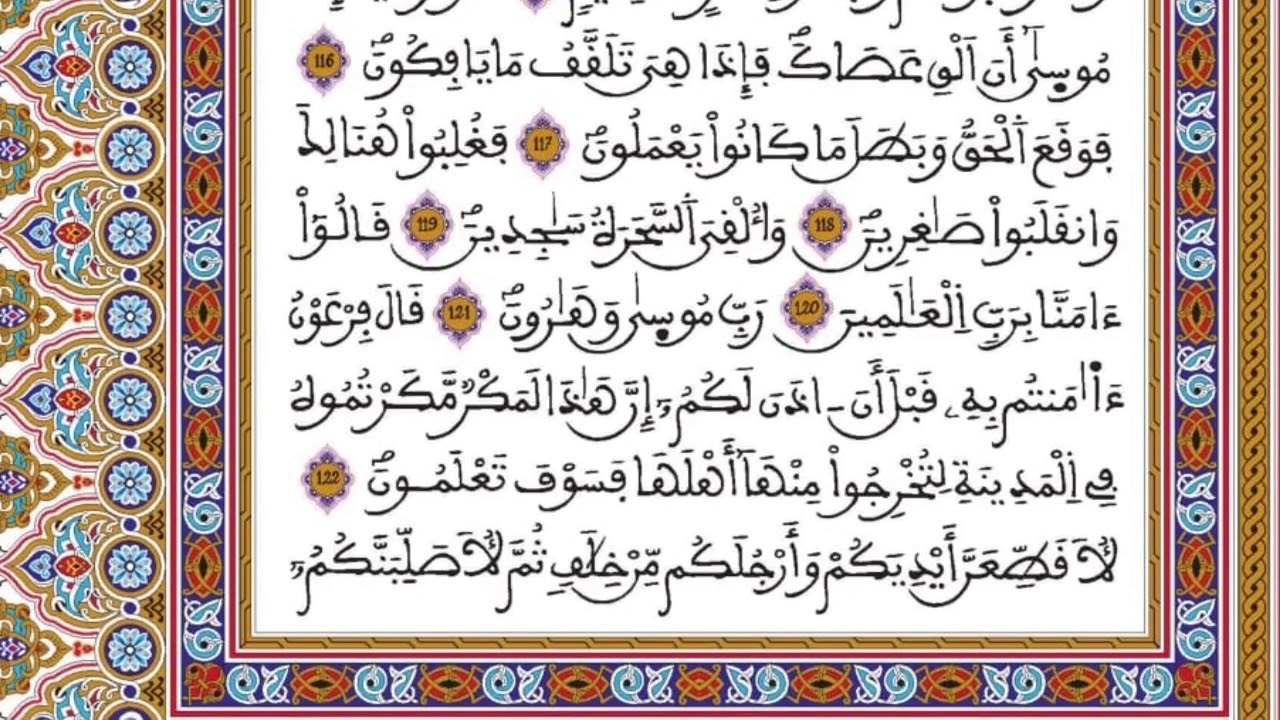 مُوسِىٰٓ أَنَ اَلْقِ عَصَاكَۖ فَإِذَا هِىَ تَلَقَّفُ مَا يَافِكُونَۖ 116
فَوَقَعَ اَ۬لْحَقُّ وَبَطَلَ مَا كَانُواْ يَعْمَلُونَۖ 117 فَغُلِبُواْ هُنَالِكَ
وَانقَلَبُواْ صَٰغِرِينَۖ 118 وَأُلْقِىَ اَ۬لسَّحَرَةُ سَٰجِدِينَۖ 119 قَالُوٓاْ
ءَامَنَّا بِرَبِّ اِ۬لْعَٰلَمِينَ 120 رَبِّ مُوسِىٰ وَهَٰرُونَۖ 121 قَالَ فِرْعَوْنُ
ءَا۬مَنتُم بِهِۦ قَبْلَ أَنَ ـ اذَنَ لَكُمُۥٓ إِنَّ هَٰذَا لَمَكْرٌ مَّكَرْتُمُوهُ
فِى اِ۬لْمَدِينَةِ لِتُخْرِجُواْ مِنْهَآ أَهْلَهَا فَسَوْفَ تَعْلَمُونَۖ 122
لَأُقَطِّعَنَّ أَيْدِيَكُمْ وَأَرْجُلَكُم مِّنْ خِلَٰفٍ ثُمَّ لَأُصَلِّبَنَّكُمُۥٓ